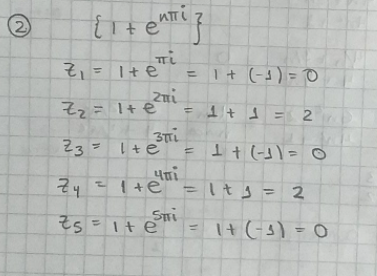 ② {1 + e^{nπi}}
z₁ = 1 + e^{πi} = 1 + (-1) = 0
z₂ = 1 + e^{2πi} = 1 + 1 = 2
z₃ = 1 + e^{3πi} = 1 + (-1) = 0
z₄ = 1 + e^{4πi} = 1 + 1 = 2
z₅ = 1 + e^{5πi} = 1 + (-1) = 0